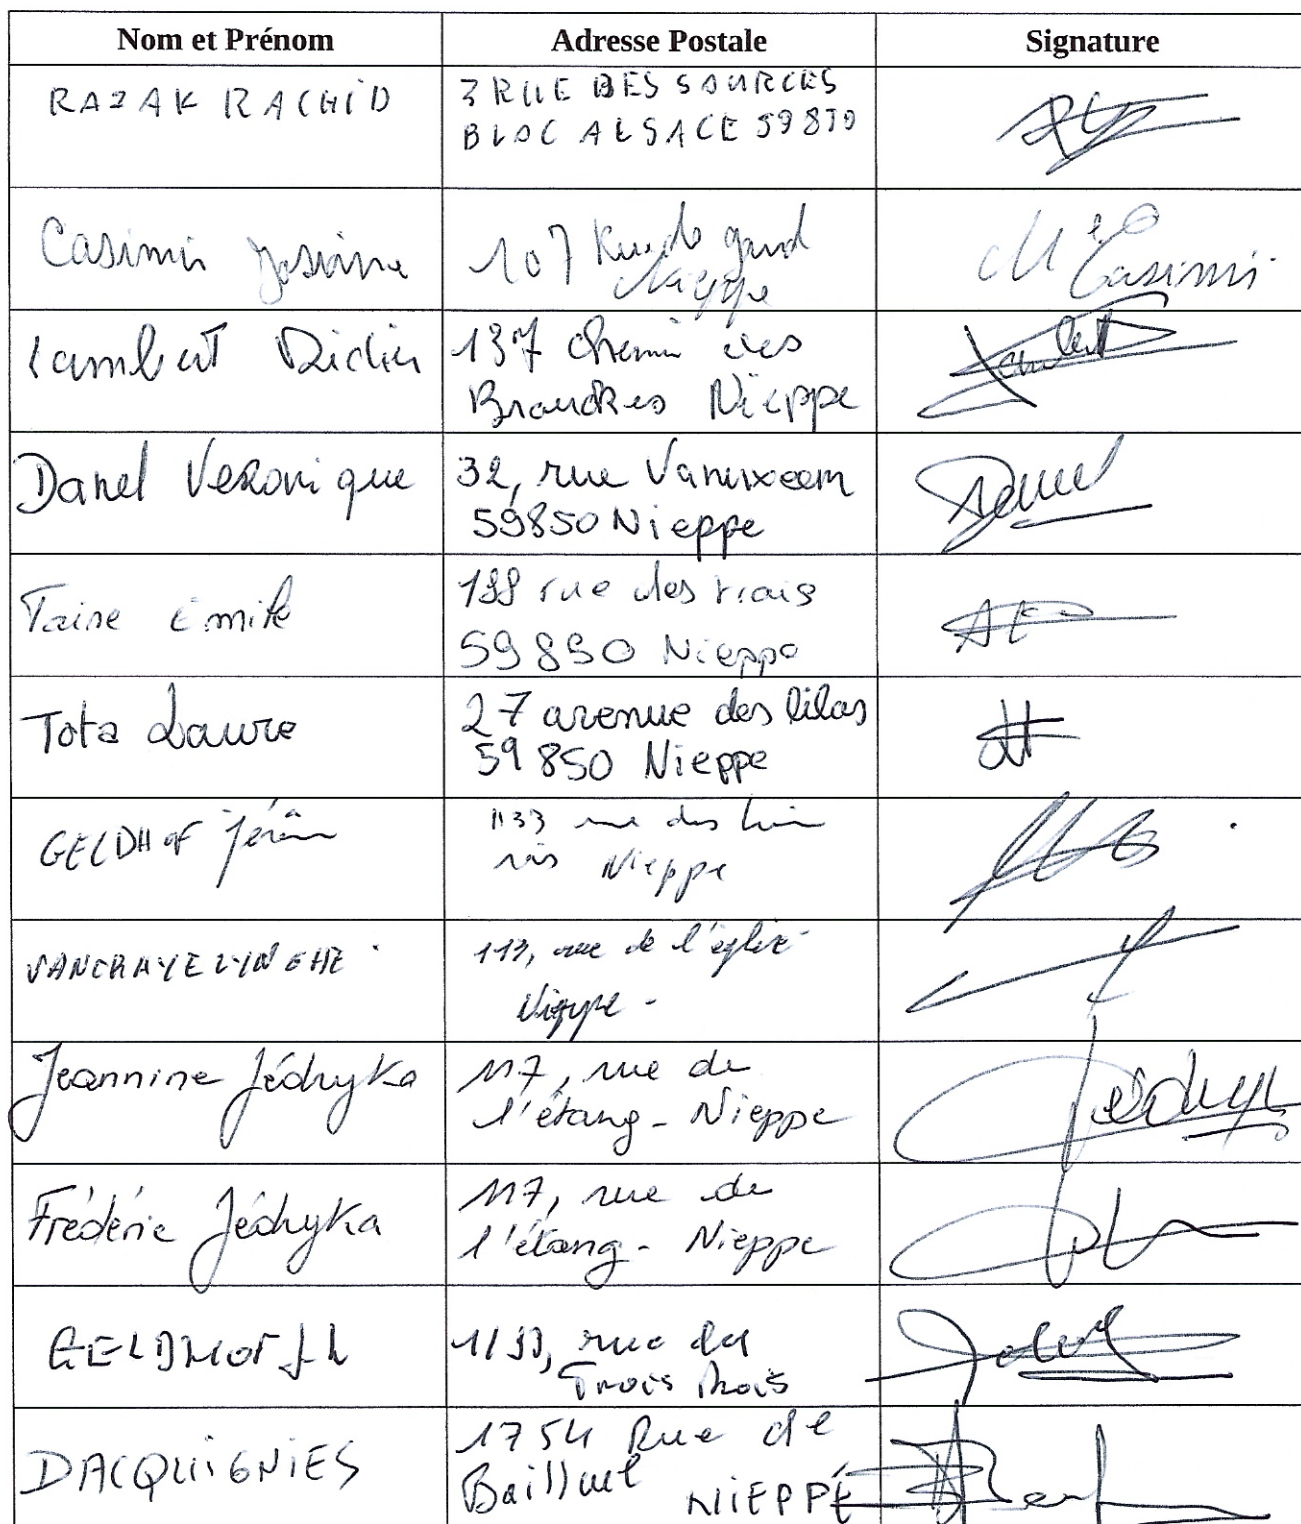 Nom et Prénom Adresse Postale Signature
RAZAK RACHID 3 RUE DES SOURCES
BLOC ALSACE 59850
Casimir Josiane 107 Rue de gand
Nieppe
Casimir
Lambert Didier 137 chemin des
Nieppe
Lambert
Danel Veronique 32, rue Vanuxeem
59850 Nieppe
Danel
Taine Emile rue des
59850 Nieppe
Tota Laure 27 avenue des lilas
59850 Nieppe
GELDHOF 1133 rue des
Nieppe
VANCRAYELYNGHE 113, rue de l'église
Nieppe -
Jeannine Jédryka 117, rue de
l'étang - Nieppe
Frédéric Jédryka 117, rue de
l'étang - Nieppe
GELDHOF 1133, rue des
Trois
DACQUIGNIES 1754 Rue de
Bailleul NIEPPE